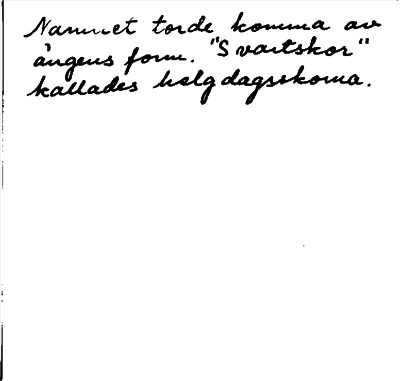 Namnet torde komma av
ängens form. "Svartskor"
kallades helgdagsskorna.